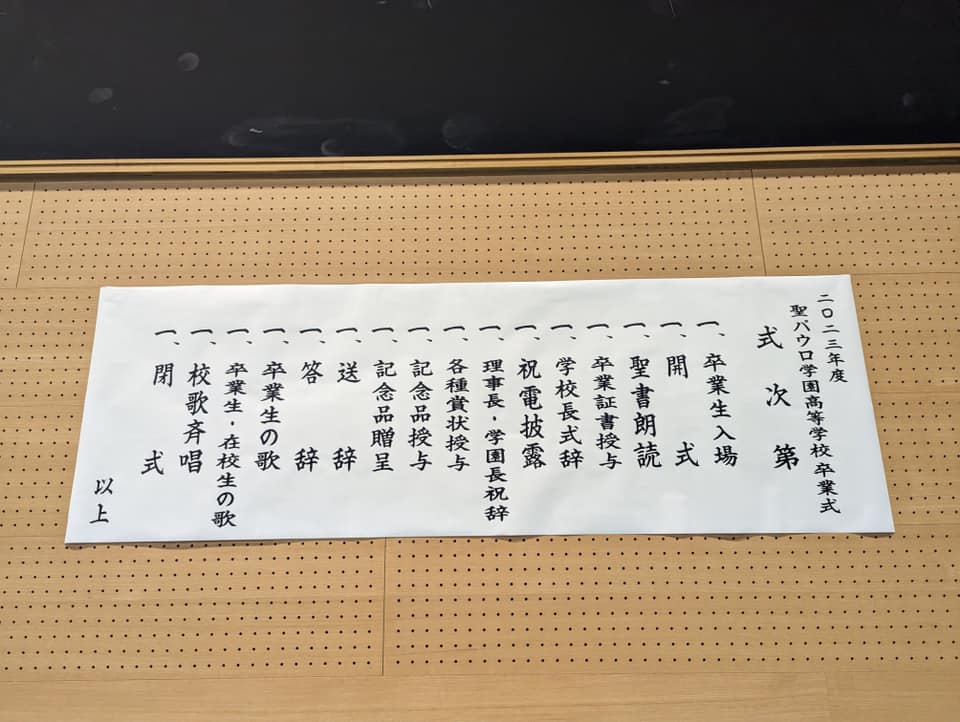 二〇二三年度
聖パウロ学園高等学校 卒業式
式次第
一、卒業生入場
一、開式
一、聖書朗読
一、卒業証書授与
一、学校長式辞
一、祝電披露
一、理事長・学園長祝辞
一、各種賞状授与
一、記念品授与
一、記念品贈呈
一、送辞
一、答辞
一、卒業生の歌
一、卒業生・在校生の歌
一、校歌斉唱
一、閉式
以上